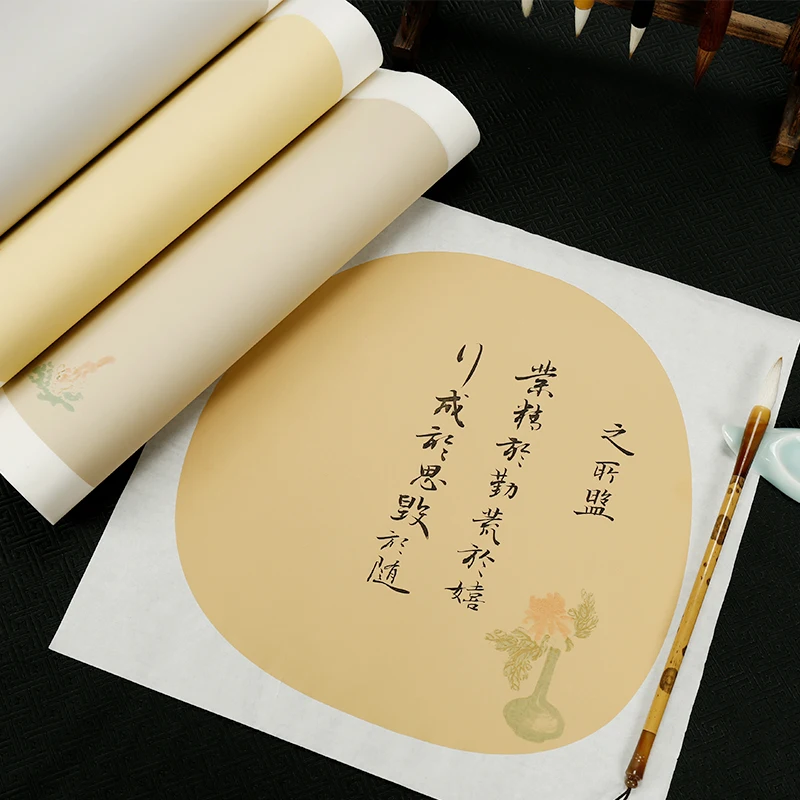 之所盟
業精於勤荒於嬉
行成於思毀於随